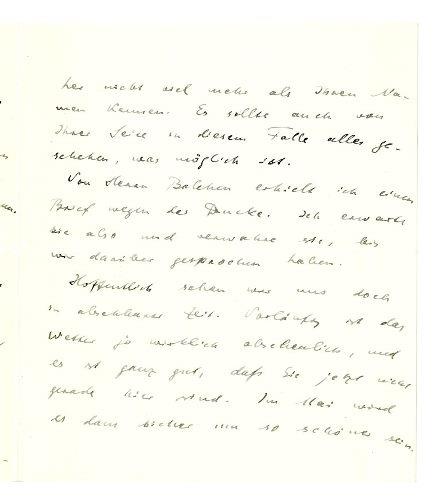 her nicht viel mehr als Ihren Na-
men kennen. Es sollte auch von
Ihrer Seite in diesem Falle alles ge-
schehen, was möglich ist.
Von Herrn Bolchen erhielt ich einen
Brief wegen der Drucke. Ich erwarte
sie also und verwahre sie, bis
wir darüber gesprochen haben.
Hoffentlich sehen wir uns doch
in absehbarer Zeit. Vorläufig ist das
Wetter ja wirklich abscheulich, und
es ist ganz gut, daß Sie jetzt nicht
gerade hier sind. Im Mai wird
es dann sicher um so schöner sein.